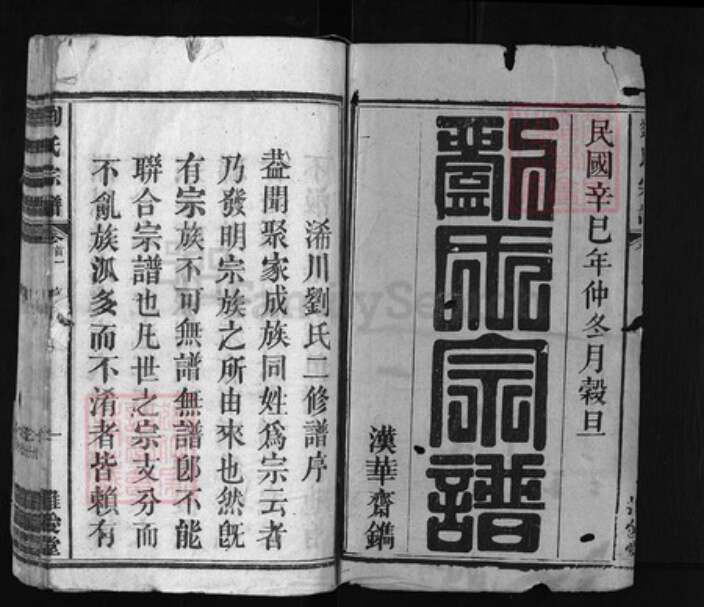 民國辛巳年仲冬月穀旦
劉氏宗譜
漢華齋鐫
浠川劉氏二修譜序
葢聞聚家成族同姓爲宗云者
乃發明宗族之所由來也然旣
有宗族不可無譜無譜卽不能
聯合宗譜也凡世之宗支分而
不亂族派多而不淆者皆賴有
氏宗譜
卷首一